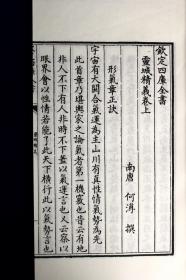 欽定四庫全書
靈城精義卷上
南唐 何溥 撰
形氣章正訣
宇宙有大關合氣運為主山川有真性情氣勢為先
此首章乃堪輿家之論氣者第一機竅也昔云有地
非人不下有人非時不下蓋以氣運言也又云察以
眼界會以性情若能了此天下橫行此以氣勢言也